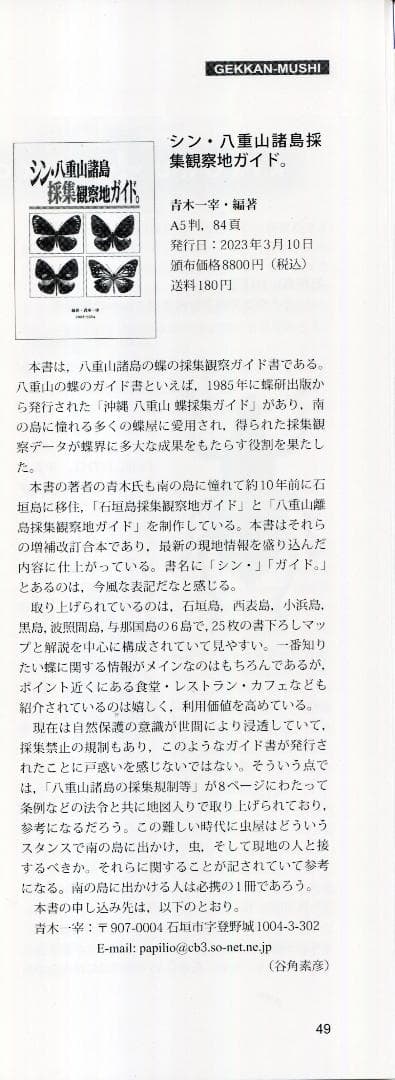 GEKKAN-MUSHI
シン・八重山諸島
採集観察地ガイド。
シン・八重山諸島採
集観察地ガイド。
青木一宰・編著
A5判，84頁
発行日：2023年3月10日
頒布価格8800円（税込）
送料180円
本書は，八重山諸島の蝶の採集観察ガイド書である。
八重山の蝶のガイド書といえば，1985年に蝶研出版か
ら発行された「沖縄 八重山 蝶採集ガイド」があり，南
の島に憧れる多くの蝶屋に愛用され，得られた採集観
察データが蝶界に多大な成果をもたらす役割を果たし
た。
本書の著者の青木氏も南の島に憧れて約10年前に石
垣島に移住，「石垣島採集観察地ガイド」と「八重山離
島採集観察地ガイド」を制作している。本書はそれら
の増補改訂合本であり，最新の現地情報を盛り込んだ
内容に仕上がっている。書名に「シン・」「ガイド。」
とあるのは，今風な表記だなと感じる。
取り上げられているのは，石垣島，西表島，小浜島，
黒島，波照間島，与那国島の6島で，25枚の書下ろしマッ
プと解説を中心に構成されていて見やすい。一番知り
たい蝶に関する情報がメインなのはもちろんであるが，
ポイント近くにある食堂・レストラン・カフェなども
紹介されているのは嬉しく，利用価値を高めている。
現在は自然保護の意識が世間により浸透していて，
採集禁止の規制もあり，このようなガイド書が発行さ
れたことに戸惑いを感じないではない。そういう点で
は，「八重山諸島の採集規制等」が8ページにわたって
条例などの法令と共に地図入りで取り上げられており，
参考になるだろう。この難しい時代に虫屋はどういう
スタンスで南の島に出かけ，虫，そして現地の人と接
するべきか。それらに関することが記されていて参考
になる。南の島に出かける人は必携の1冊であろう。
本書の申し込み先は，以下のとおり。
青木一宰：〒907-0004 石垣市字登野城1004-3-302
E-mail: papilio@cb3.so-net.ne.jp
（谷角素彦）
49